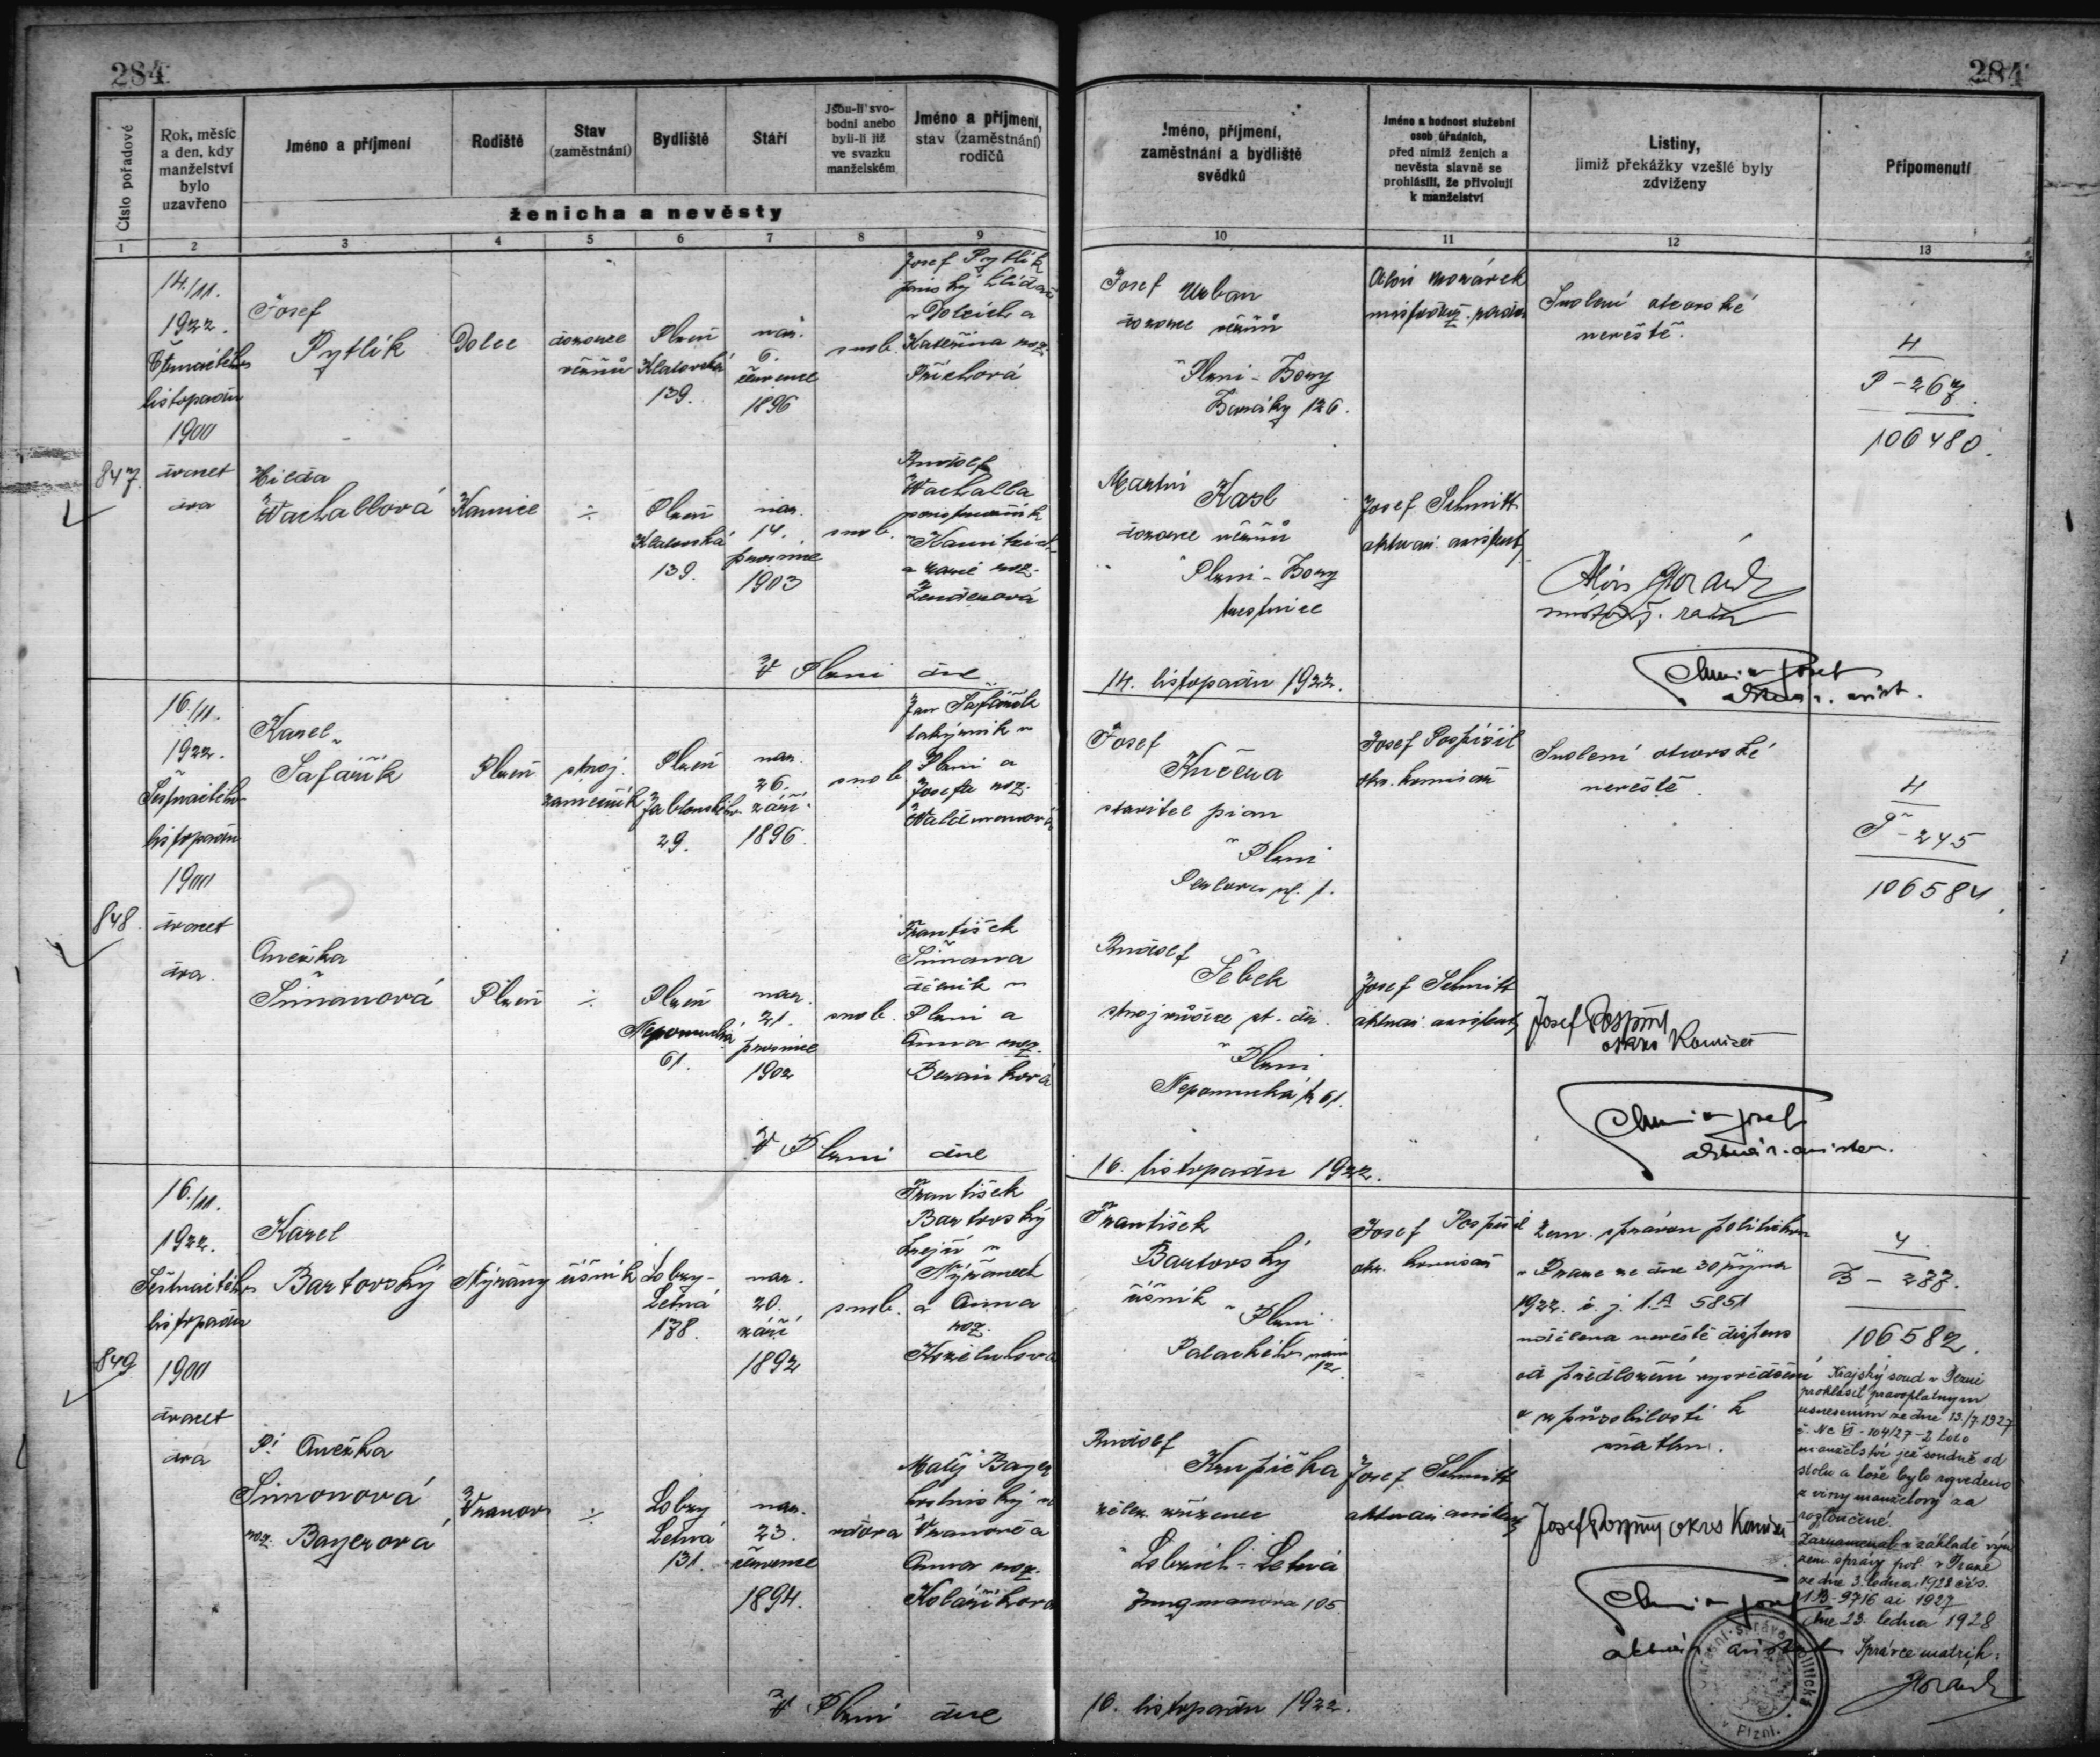 284
284
Číslo pořadové
Rok, měsíc
a den, kdy
manželství
bylo
uzavřeno
Jméno a příjmení
Rodiště
Stav
(zaměstnání)
Bydliště
Stáří
Jsou-li svo-
bodni anebo
byli-li již
ve svazku
manželském
Jméno a příjmení,
stav (zaměstnání)
rodičů
ženicha a nevěsty
Jméno, příjmení,
zaměstnání a bydliště
svědků
Jméno a hodnost služební
osob úřadních,
před nimiž ženich a
nevěsta slavně se
prohlásili, že přivolují
k manželství
Listiny,
jimiž překážky vzešlé byly
zdviženy
Připomenutí
1 2 3 4 5 6 7 8 9 10 11 12 13
847.
14./11.
1922.
Čtrnáctého
listopadu
1900
dvacet
dva
Josef
Pytlík
Dolce
dozorce
vězňů
Plzeň
Klatovská
139.
nar.
6.
července
1896
svob.
Josef Pytlík
hlídač
v Dolcích a
Kateřina roz.
Hilda
Wachallová
Kamnice
÷
Plzeň
Klatovská
139.
nar.
14.
prosince
1903
svob.
Rudolf
Wachalla
a roz.
Josef Urban
dozorce vězňů
v Plzni - Bory
126.
Martin Karl
dozorce vězňů
v Plzni - Bory
trestnice
Alois
Josef Schmitt
aktuár. asistent
Svolení otcovské
nevěstě.
4
P - 267.
106480.
V Plzni dne
14. listopadu 1922.
848.
16./11.
1922.
Šestnáctého
listopadu
1900
dvacet
dva
Karel
Šafařík
Plzeň
stroj.
zámečník
Plzeň
Jablonského
29.
nar.
26.
září
1896.
svob.
Jan Šafařík
v
Plzni a
Josefa roz.
Anežka
Šimanová
Plzeň
÷
Plzeň
Nepomucká
61.
nar.
21.
prosince
1902
svob.
František
Šimana
dělník v
Plzni a
Anna roz.
Beránková
Josef
Kučera
stavitel pian
v Plzni
Rudolf
Šebek
strojvůdce st. dr.
v Plzni
Nepomucká tř. 61.
Josef Pospíšil
okr. komisař
Josef Schmitt
aktuár. asistent
Svolení otcovské
nevěstě.
Josef Pospíšil
okres komisař
4
Š - 245
106584.
V Plzni dne
16. listopadu 1922.
849
16./11.
1922.
Šestnáctého
listopadu
1900
dvacet
dva
Karel
Bartovský
Nýřany
číšník
Lobzy-
Letná
138.
nar.
20.
září
1892
svob.
František
Bartovský
krejčí v
Nýřanech
a Anna
roz.
Koželuhová
Pí Anežka
Simonová
roz. Bayerová
Vranov
÷
Lobzy
Letná
131.
nar.
23.
července
1894.
vdova
Matěj Bayer
v
Vranově a
Anna roz.
Kolaříková
František
Bartovský
číšník
v Plzni
Palackého nám.
12.
Rudolf
Krupička
želez. zřízenec
v Lobzích - Letná
Jungmanova 105
Josef Pospíšil
okr. komisař
Josef Schmitt
aktuár. asistent
Zem. správou politickou
v Praze ze dne 30 října
1922. č. j. 1.A 5851
udělena nevěstě dispens
od předložení vysvědčení
o způsobilosti k
sňatku.
Josef Pospíšil okres komisař
4
B - 287.
106582.
Krajský soud v Plzni
prohlásil pravoplatným
usnesením ze dne 13./7.1927
č. Nc VI - 104/27-2 toto
manželství jež soudně od
stolu a lože bylo rozvedeno
z viny manželovy za
rozloučené.
Zaznamenal v základě výn.
zem. správy pol. v Praze
ze dne 3. ledna 1928 čís.
1B-9716 ai 1927
Dne 23. ledna 1928
Správce matrik:
V Plzni dne
16. listopadu 1922.
Okresní správa politická
v Plzni.